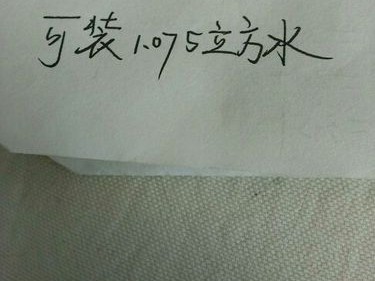 可装1.075立方水